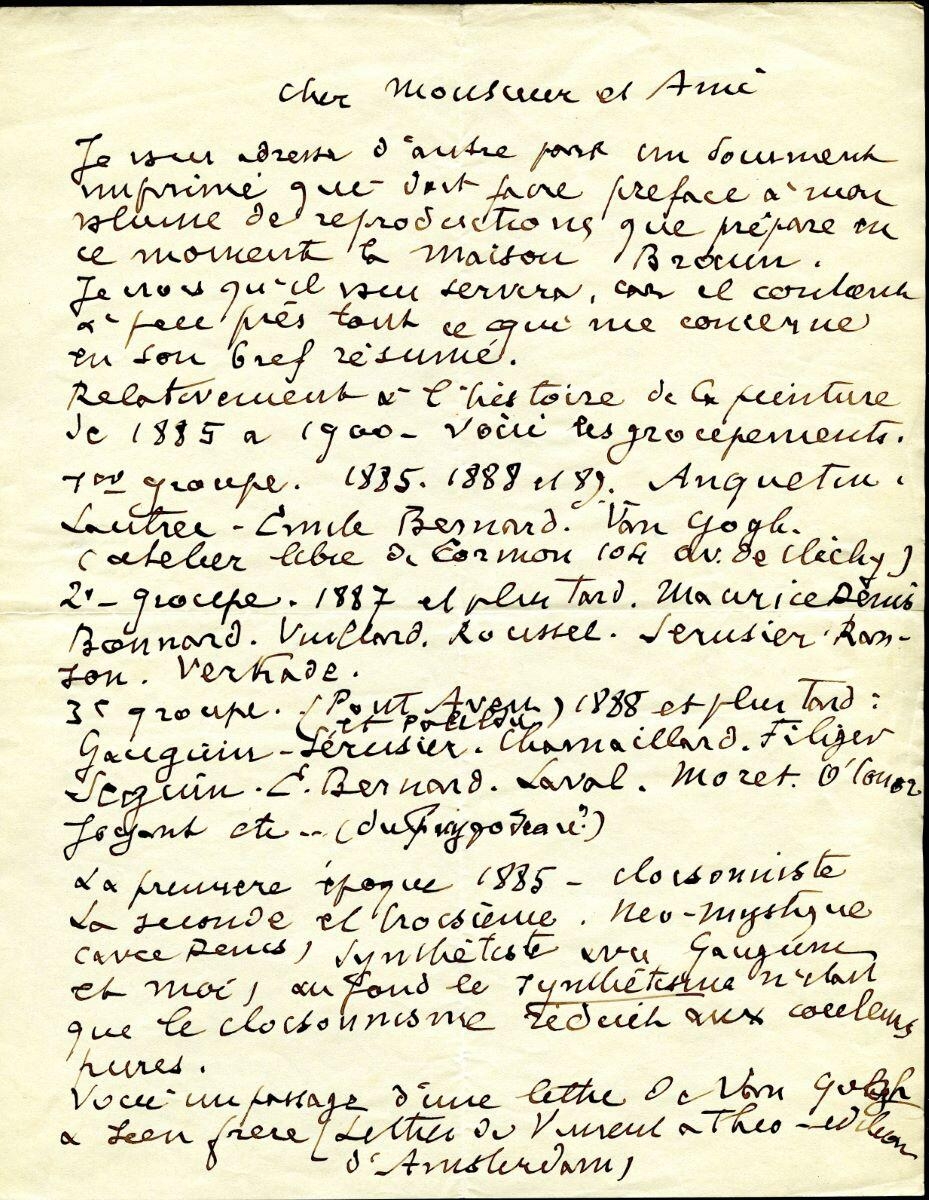 Cher Monsieur et Ami
Je vous adresse d'autre part un document
imprimé qui doit faire preface à mon
volume de reproductions que prépare en
ce moment la Maison Braun.
Je crois qu'il vous servira, car il contient
à peu près tout ce qui me concerne
en son bref résumé.
Relativement à l'histoire de la peinture
de 1885 a 1900 - voici les groupements.
1er groupe. 1885. 1888 et 89. Anquetin.
Lautrec - Emile Bernard. Van Gogh.
(atelier libre de Cormon 104 av. de Clichy)
2e - groupe. 1887 et plus tard. Maurice Denis
Bonnard. Vuillard. Roussel. Serusier. Ran-
son. Verkade.
3e groupe. (Pont Aven) 1888 et plus tard:
et Pouldu
Gauguin - Sérusier. Chamaillard. Filiger
Seguin. E. Bernard. Laval. Moret. O'Conor
Jourdan etc -- (du
La premiere époque 1885 - cloisonniste
La seconde et troisième. Neo-mystique
(avec Denis) Synthétiste avec Gauguin
et moi, au fond le synthétisme n'etait
que le cloisonnisme réduit aux couleurs
pures.
Voici un passage d'une lettre de Van Gogh
a son frère (Lettres de Vincent a Theo - edition
d'Amsterdam)